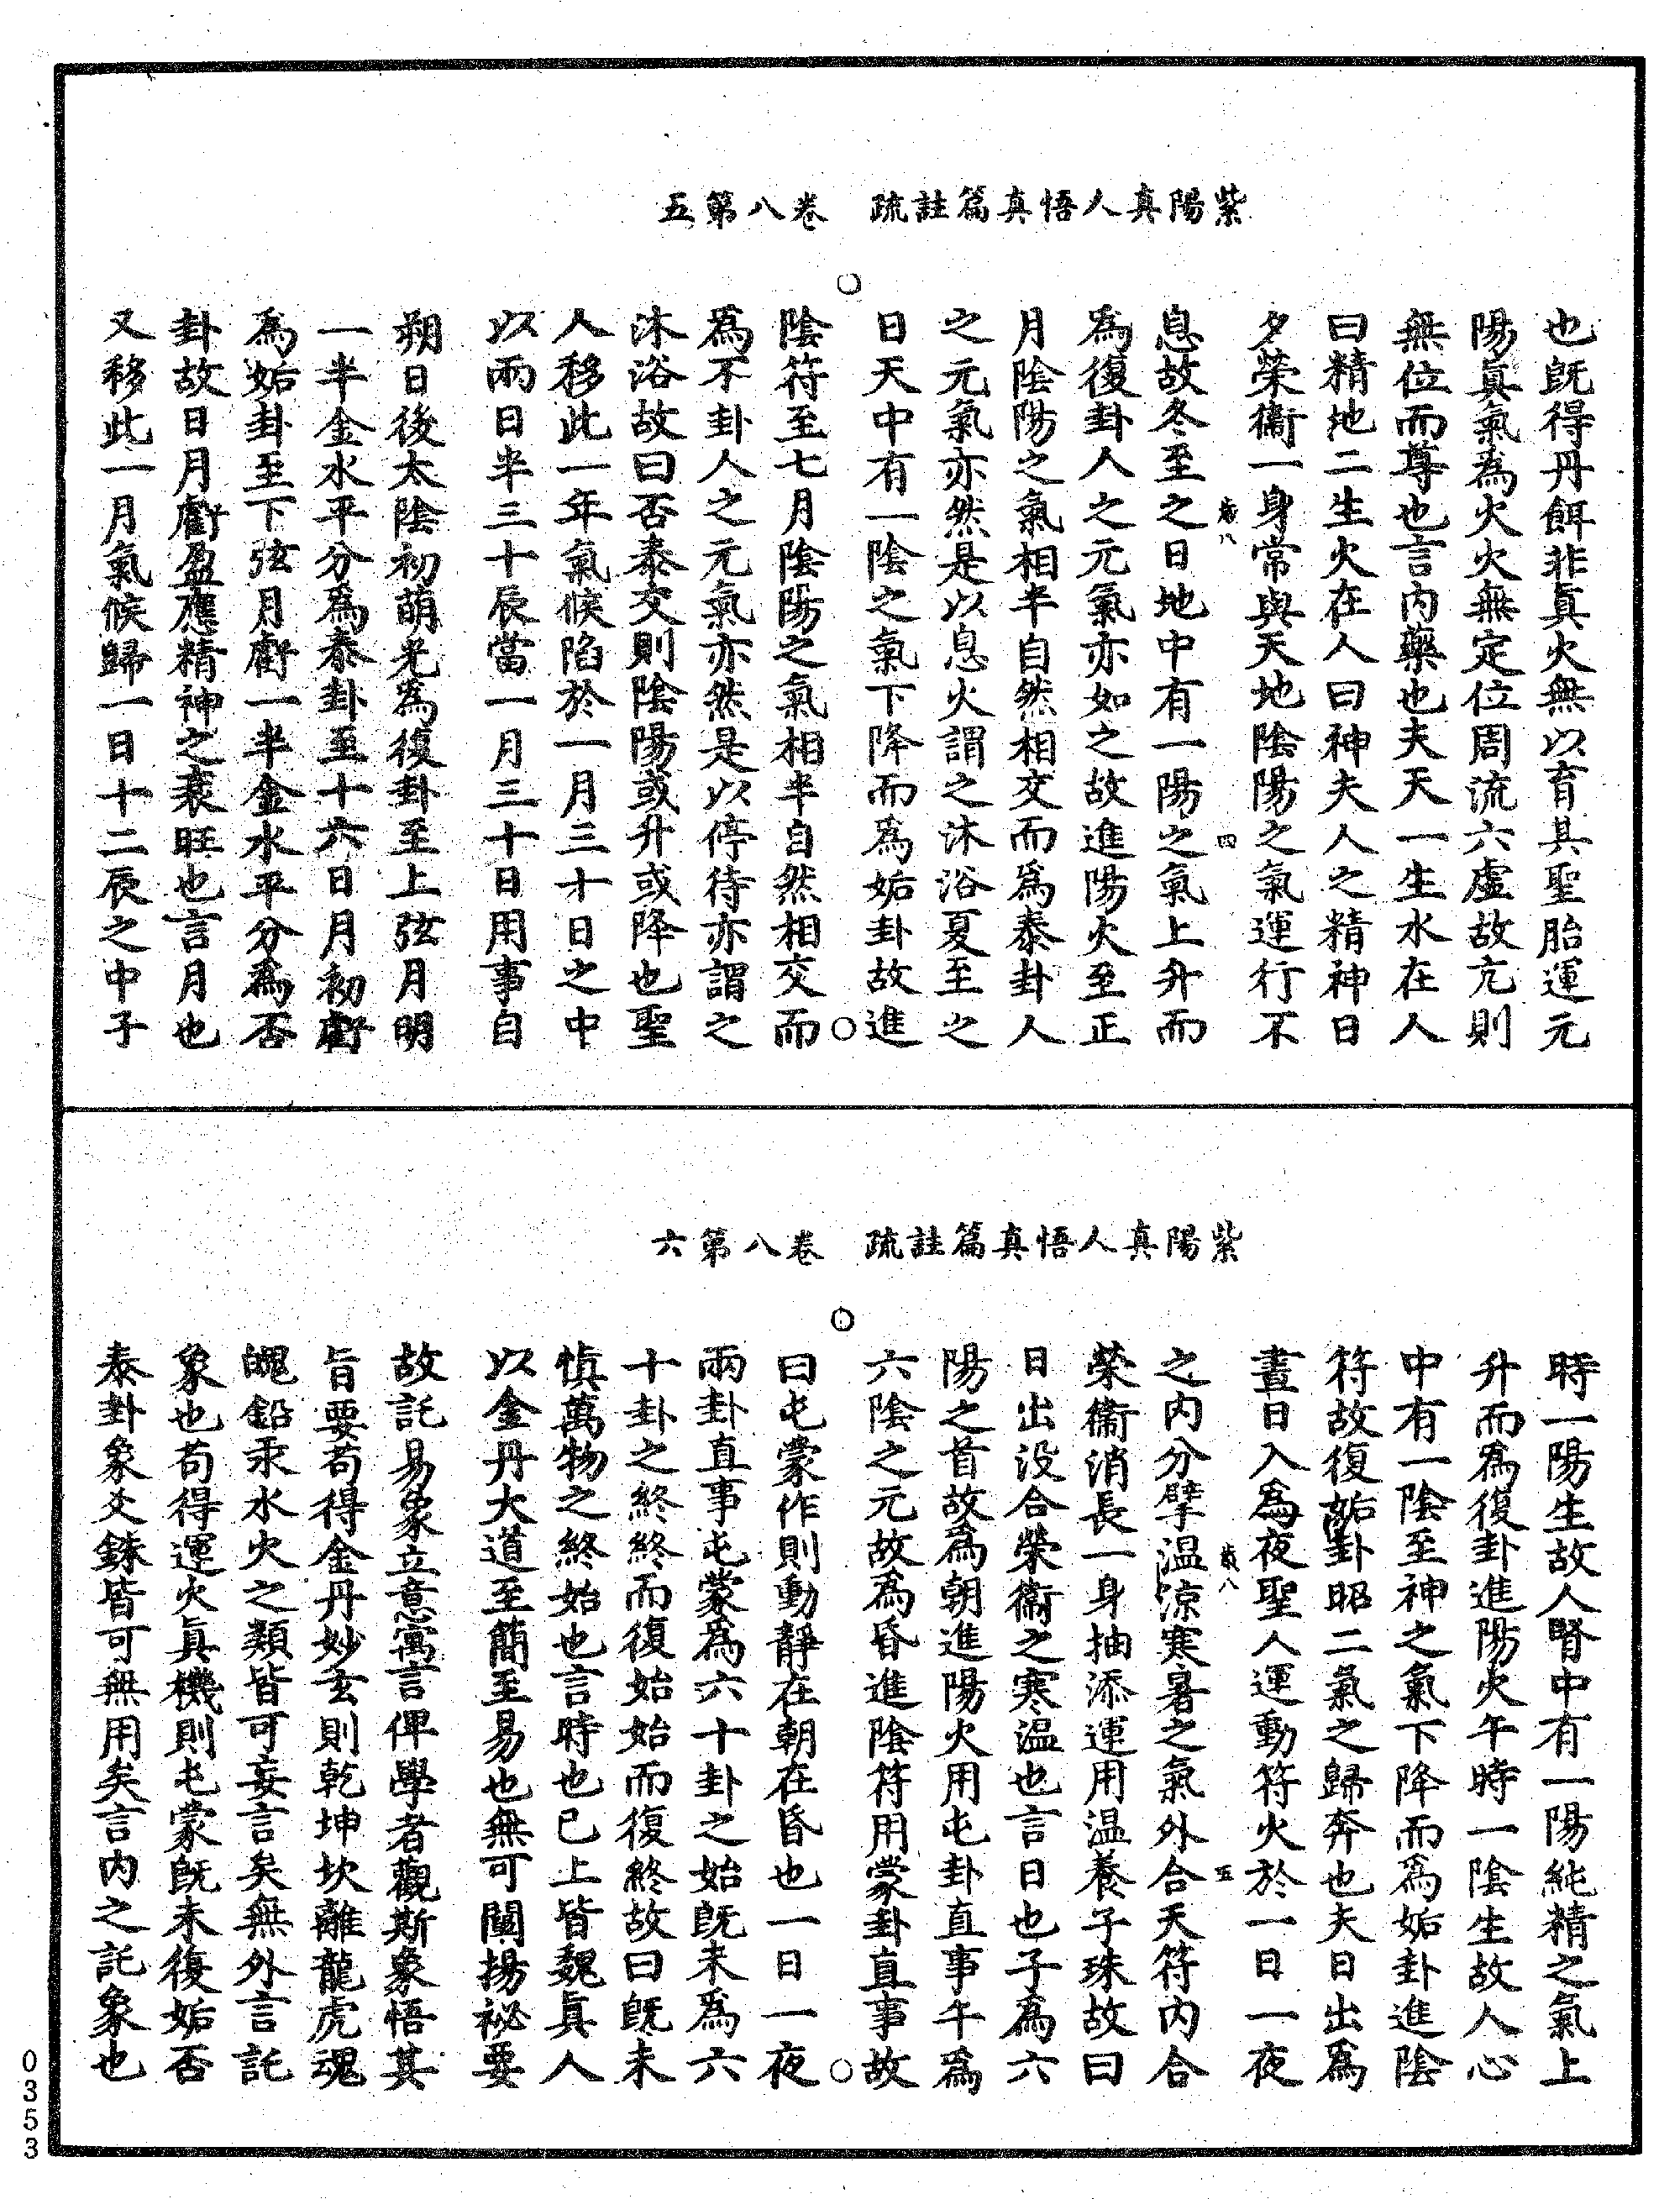 紫陽真人悟真篇註疏　卷八第五
也既得丹餌非眞火無以育其聖胎運元
陽眞氣爲火火無定位周流六虛故亢則
無位而尊也言内藥也夫天一生水在人
曰精地二生火在人曰神夫人之精神日
夕榮衞一身常與天地陰陽之氣運行不
歲八
四
息故冬至之日地中有一陽之氣上升而
爲復卦人之元氣亦如之故進陽火至正
月陰陽之氣相半自然相交而爲泰卦人
之元氣亦然是以息火謂之沐浴夏至之
日天中有一陰之氣下降而爲姤卦故進
陰符至七月陰陽之氣相半自然相交而
爲不卦人之元氣亦然是以停待亦謂之
沐浴故曰否泰交則陰陽或升或降也聖
人移此一年氣候陷於一月三十日之中
以兩日半三十辰當一月三十日用事自
朔日後太陰初萌光爲復卦至上弦月明
一半金水平分爲泰卦至十六日月初虧
爲姤卦至下弦月虧一半金水平分爲否
卦故日月虧盈應精神之衰旺也言月也
又移此一月氣候歸一日十二辰之中子
紫陽真人悟真篇註疏　卷八第六
時一陽生故人腎中有一陽純精之氣上
升而爲復卦進陽火午時一陰生故人心
中有一陰至神之氣下降而爲姤卦進陰
符故復姤卦昭二氣之歸奔也夫日出爲
晝日入爲夜聖人運動符火於一日一夜
歲八
五
之内分擘温涼寒暑之氣外合天符内合
榮衞消長一身抽添運用温養子珠故曰
日出没合榮衞之寒温也言日也子爲六
陽之首故爲朝進陽火用屯卦直事午爲
六陰之元故爲昏進陰符用蒙卦直事故
曰屯蒙作則動靜在朝在昏也一日一夜
兩卦直事屯蒙爲六十卦之始旣未爲六
十卦之終終而復始始而復終故曰旣未
愼萬物之終始也言時也已上皆魏眞人
以金丹大道至簡至易也無可闡揚祕要
故託易象立意寓言俾學者觀斯象悟其
旨要苟得金丹妙玄則乾坤坎離龍虎魂
魄鉛汞水火之類皆可妄言矣無外言託
象也苟得運火眞機則屯蒙旣未復姤否
泰卦象爻銖皆可無用矣言内之託象也
0353